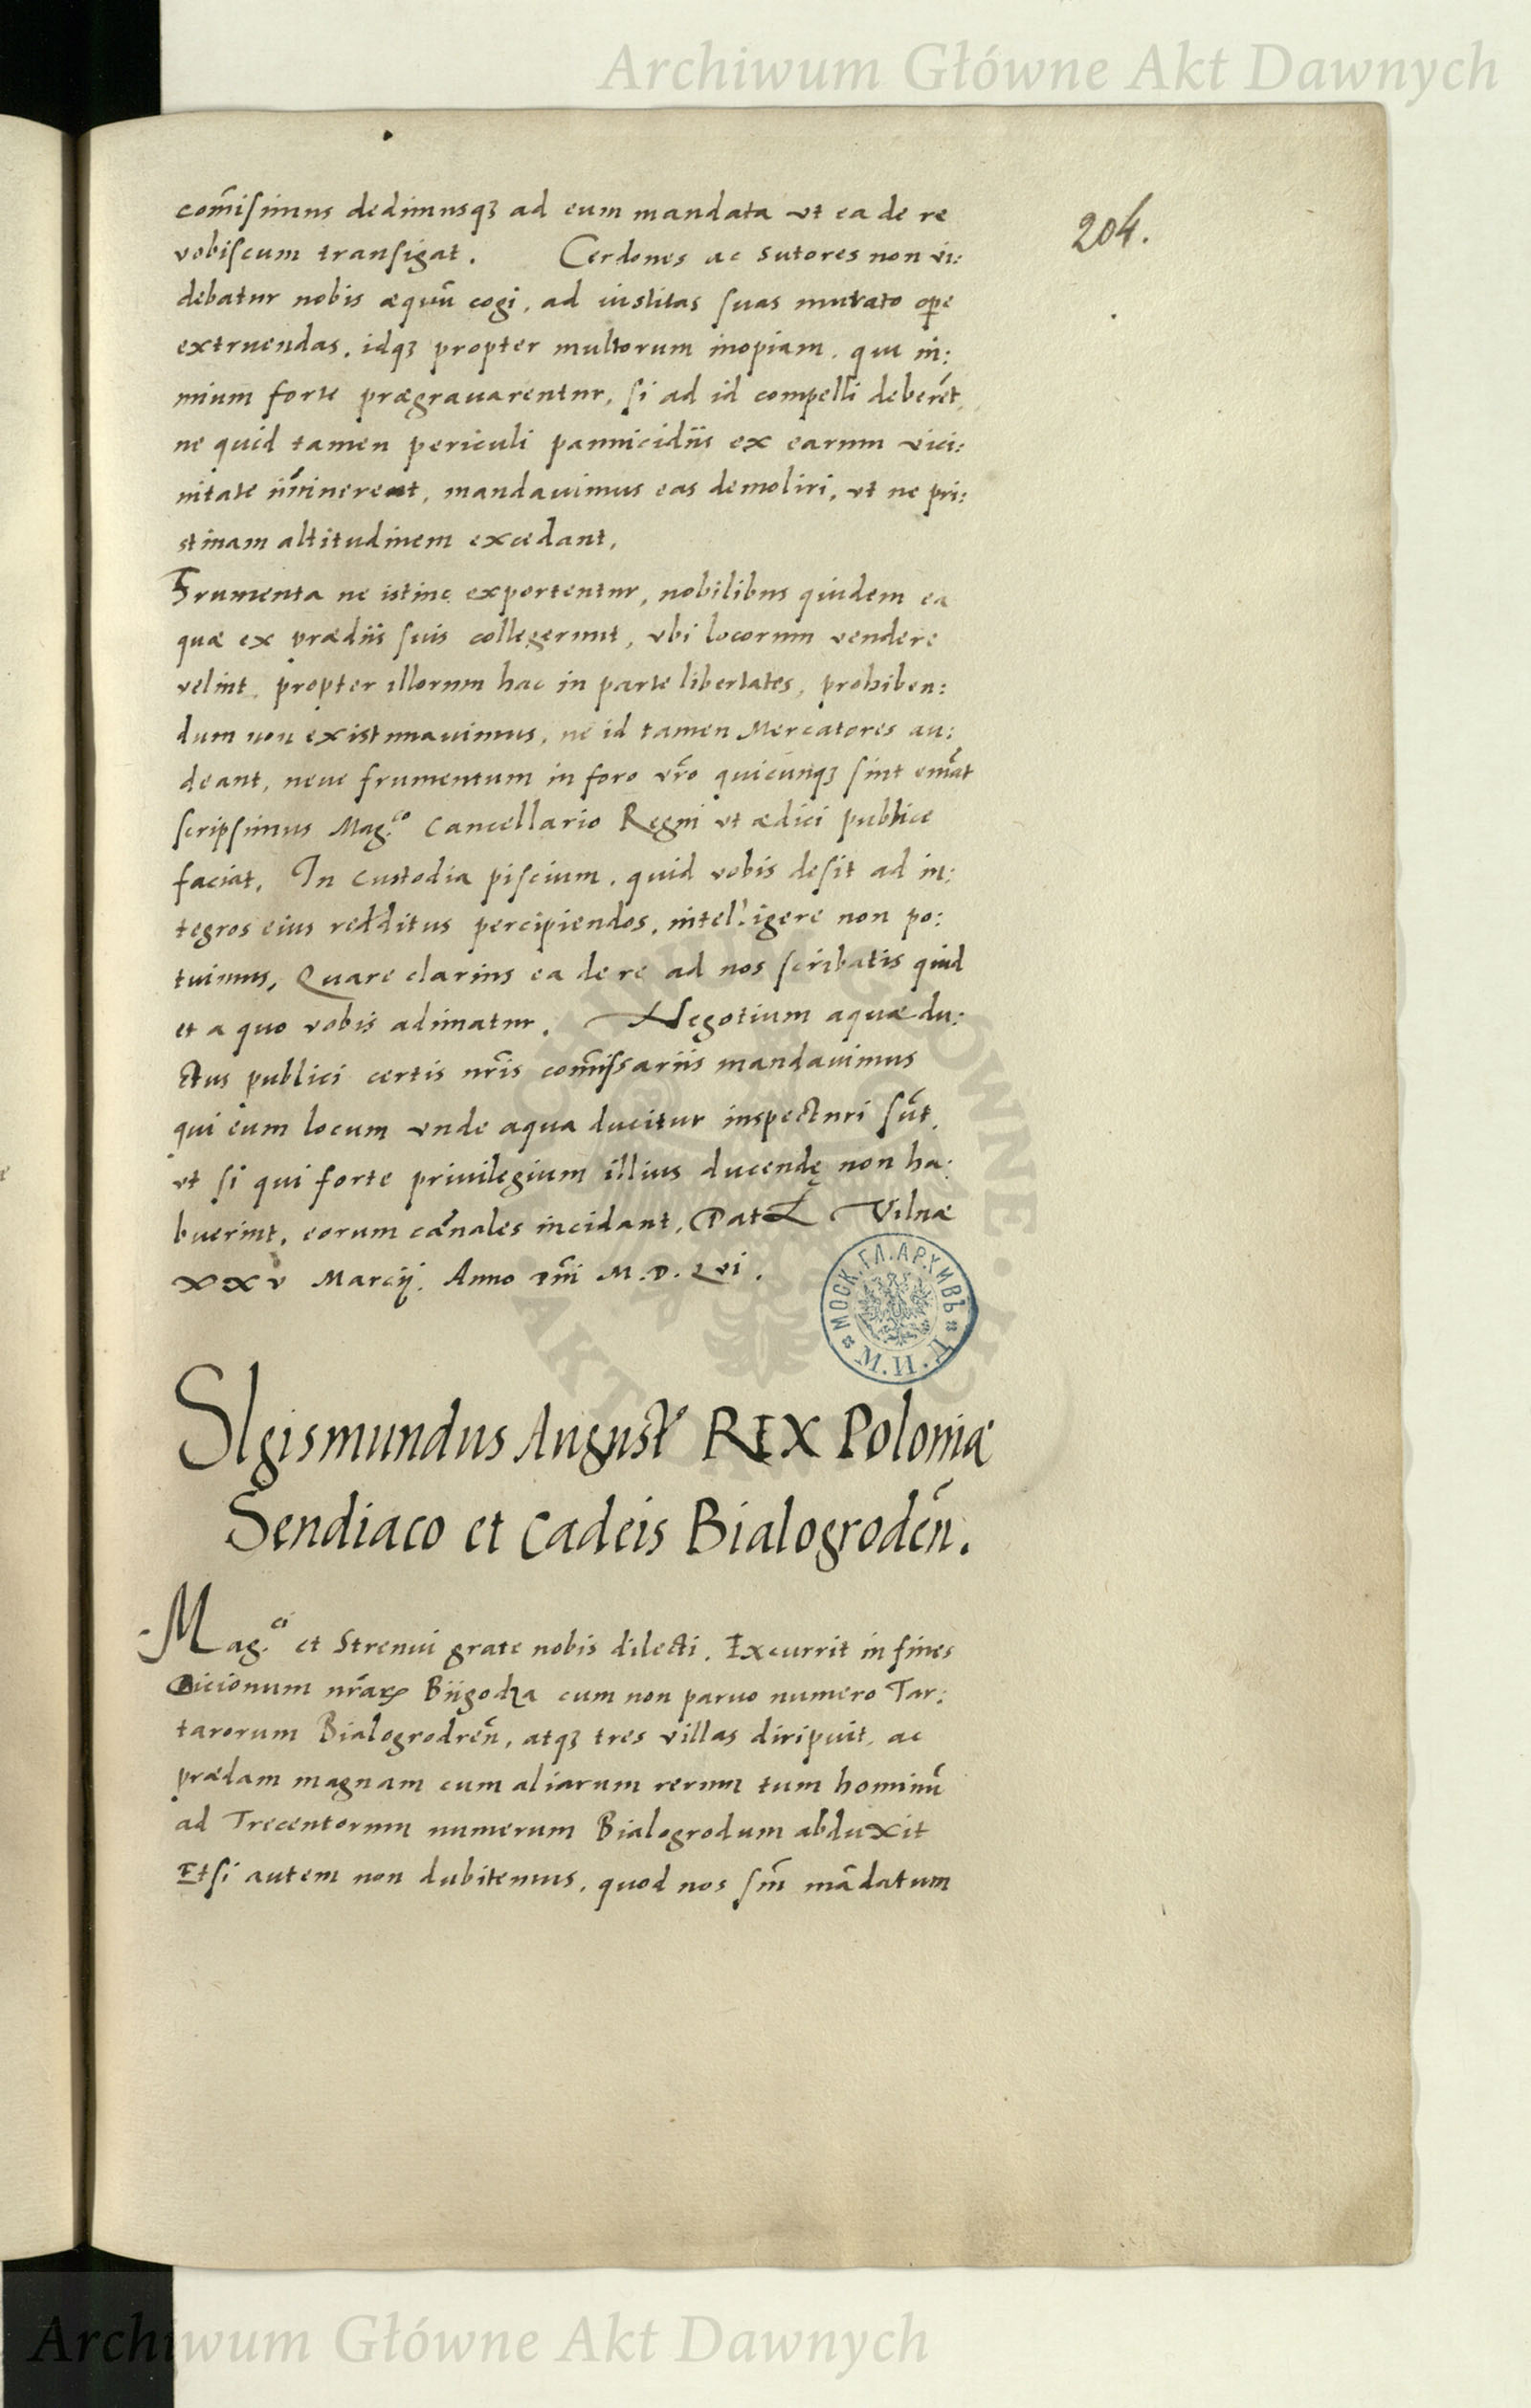 Archiwum Główne Akt Dawnych
204.
com̄isimus dedimusqꝫ ad eum mandata vt ea de re
vobiscum transigat. Cerdones ac sutores non vi:
debatur nobis æquū cogi, ad institas suas mutato oꝑe
extruendas, idqꝫ propter multorum inopiam, qui ni:
mium forte prægrauarentur, si ad id compelli deberēt,
ne quid tamen periculi pannicidiis ex earum vici:
nitate im̄ineret, mandauimus eas demoliri, vt ne pri:
stinam altitudinem excedant,
Frumenta ne istinc exportentur, nobilibus quidem ea
quæ ex prædiis suis collegerunt, vbi locorum vendere
velint, propter illorum hac in parte libertates, prohiben:
dum non existimauimus, ne id tamen Mercatores au:
deant, neue frumentum in foro vr̄o quicunqꝫ sint emāt
scripsimus Mag.co Cancellario Regni vt ædici publice
faciat, In custodia piscium, quid vobis desit ad in:
tegros eius redditus percipiendos, intelligere non po:
tuimus, Quare clarius ea de re ad nos scribatis quid
et a quo vobis adimatur. Negotium aquædu:
ctus publici certis nr̄is com̄issariis mandauimus
qui eum locum vnde aqua ducitur inspecturi sūt,
vt si qui forte priuilegium illius ducendę non ha:
buerint, eorum canales incidant, Dat Vilnæ
xxv Marcij. Anno Dn̄i M.D.Lvi.
МОСК.ГЛ.АРХИВЪ
М.И.Д.
SIgismundus August9 REX Poloniæ
Sendiaco et Cadeis Bialogrodēn.
Mag.ci et Strenui grate nobis dilecti. Excurrit in fines
Dicionum nr̄aꝝ Biigodza cum non paruo numero Tar:
tarorum Bialogrodreñ, atqꝫ tres villas diripuit, ac
prædam magnam cum aliarum rerum tum hominū
ad Trecentorum numerum Bialogrodum abduxit
Etsi autem non dubitemus, quod nos sm̄ mādatum
Archiwum Główne Akt Dawnych